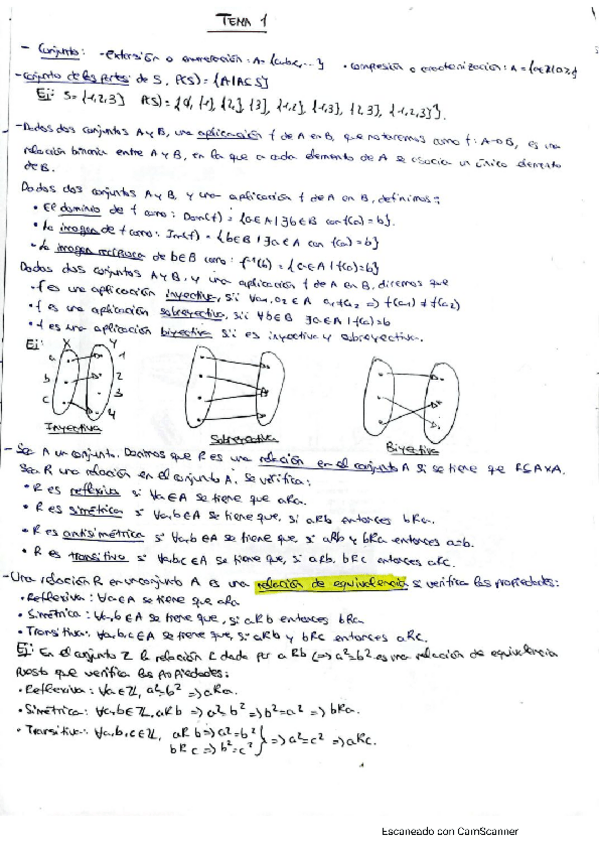 TEMA 1
- Conjunto: - Extensión o enumeración: A = {a,b,c,...} • Compresión o caracterización: A =
- Conjunto de las partes de S, P(S) = {A|A⊆S}
Ej: S = {1,2,3} P(S) = {∅, {1}, {2}, {3}, {1,2}, {1,3}, {2,3}, {1,2,3}}.
- Dados dos conjuntos A y B, una aplicación f de A en B, que notaremos como f: A→B, es una
relación binaria entre A y B, en la que a cada elemento de A se asocia un único elemento
de B.
Dados dos conjuntos A y B, y una aplicación f de A en B, definimos:
• El dominio de f como: Dom(f) = {a∈A | ∃b∈B con f(a)=b}.
• La imagen de f como: Im(f) = {b∈B | ∃a∈A con f(a)=b}
• La imagen recíproca de b∈B como: f⁻¹(b) = {a∈A | f(a)=b}
Dados dos conjuntos A y B, y una aplicación f de A en B, diremos que
• f es una aplicación inyectiva, sii ∀a₁,a₂∈A a₁≠a₂ => f(a₁) ≠ f(a₂)
• f es una aplicación sobreyectiva, sii ∀b∈B ∃a∈A | f(a)=b
• f es una aplicación biyectiva sii es inyectiva y sobreyectiva.
Ej: X Y
a 1
b 2
3
c 4
Inyectiva Sobreyectiva Biyectiva
- Sea A un conjunto. Decimos que R es una relación en el conjunto A si se tiene que R⊆AxA.
Sea R una relación en el conjunto A, se verifica:
• R es reflexiva si ∀a∈A se tiene que aRa.
• R es simétrica si ∀a,b∈A se tiene que, si aRb entonces bRa.
• R es antisimétrica si ∀a,b∈A se tiene que, si aRb y bRa entonces a=b.
• R es transitiva si ∀a,b,c∈A se tiene que, si aRb, bRc entonces aRc.
- Una relación R en un conjunto A es una relación de equivalencia si verifica las propiedades:
• Reflexiva: ∀a∈A se tiene que aRa
• Simétrica: ∀a,b∈A se tiene que, si aRb entonces bRa
• Transitiva: ∀a,b,c∈A se tiene que, si aRb y bRc entonces aRc.
Ej: En el conjunto Z la relación R dada por aRb <=> a²=b² es una relación de equivalencia
puesto que verifica las propiedades:
• Reflexiva: ∀a∈Z, a²=b² => aRa.
• Simétrica: ∀a,b∈Z, aRb => a²=b² => b²=a² => bRa.
• Transitiva: ∀a,b,c∈Z, aRb => a²=b² } => a²=c² => aRc.
bRc => b²=c²
Escaneado con CamScanner